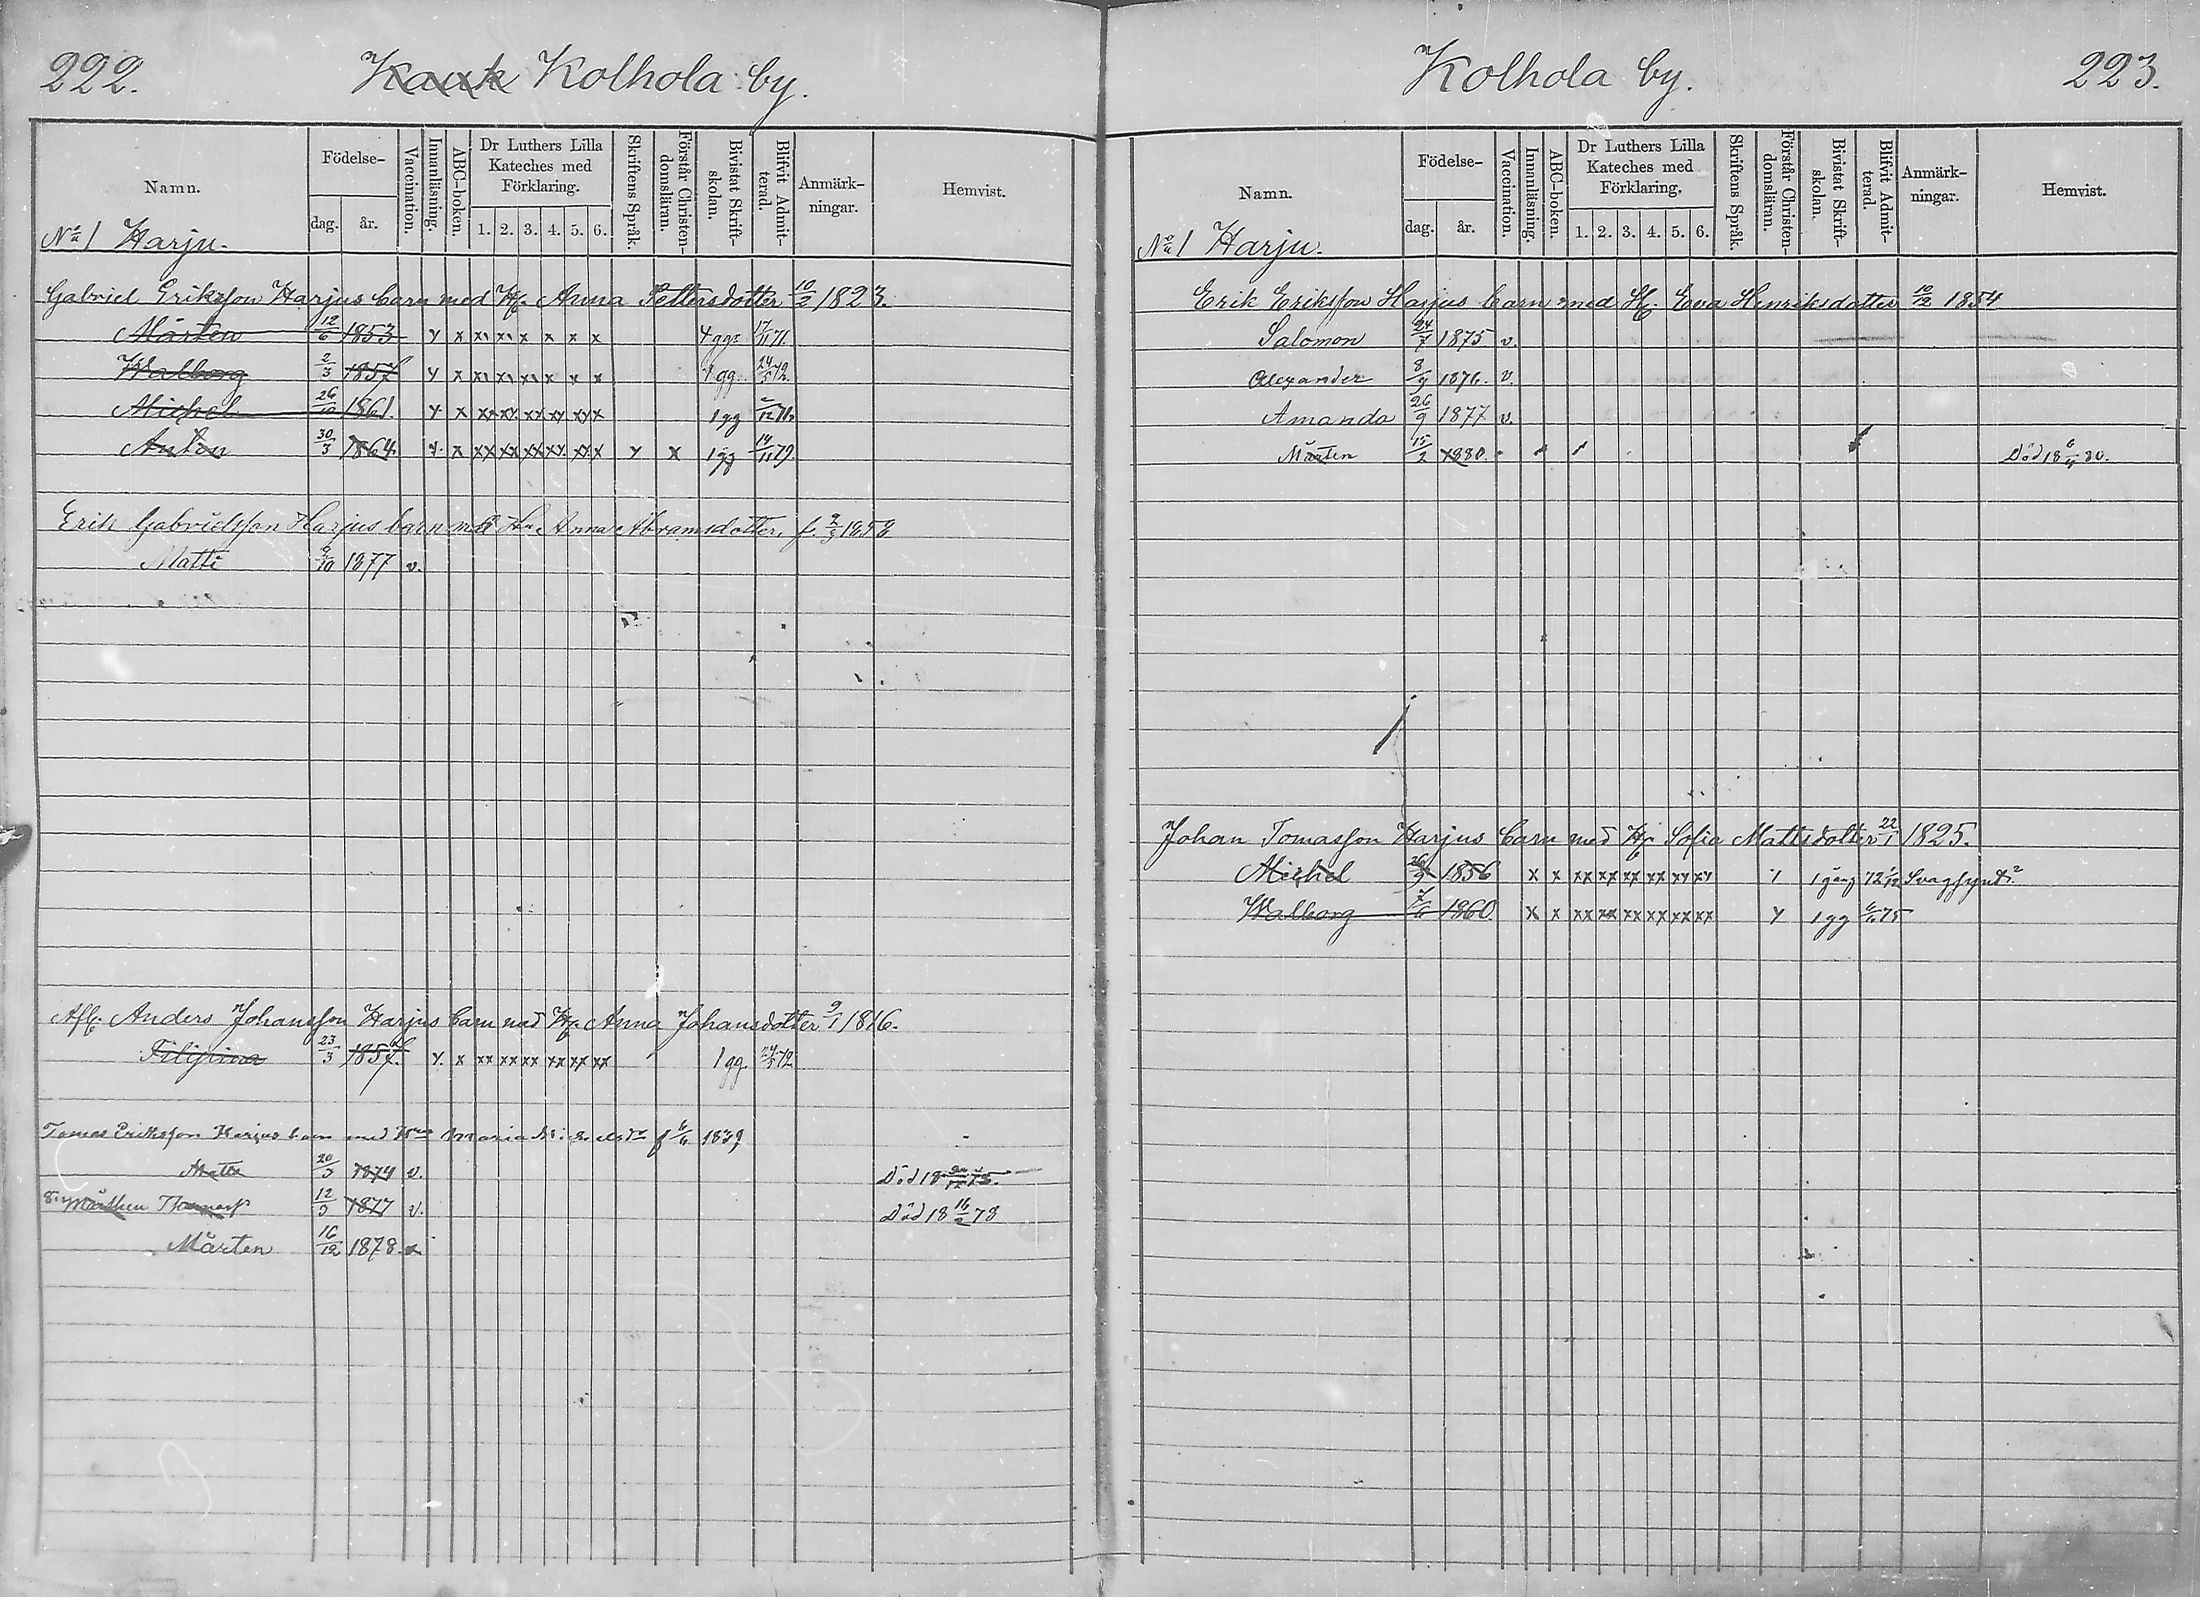 222. Kauk Kolhola by.
Namn.
Födelse-
dag. år.
Vaccination.
Innanläsning.
ABC-boken.
Dr Luthers Lilla
Kateches med
Förklaring.
1. 2. 3. 4. 5. 6.
Skriftens Språk.
Förstår Christen-
domsläran.
Bivistat Skrift-
skolan.
Blifvit Admit-
terad.
Anmärk-
ningar.
Hemvist.
No 1 Harju.
Gabriel Eriksson Harjus barn med H. Anna Pettersdotter 10/2 1823.
Mårten 12/6 1853 x x x x x x x x 4 ggr 17/11 71
Walborg 2/3 1857 x x x x x x x x 1 gg. 24/5 72
Michel 26/10 1861. x x xx xx xx xx xx x 1 gg 2/12 71
Anton 30/3 1864 x x xx xx xx xx xx x x x 1 gg 14/11 79
Erik Gabrielsson Harjus barn med H. Anna Abramsdotter, f. 2/3 1858
Matti 9/10 1877 v.
Afl. Anders Johansson Harjus barn med H. Anna Johansdotter 9/1 1816.
Filipina 23/3 1857. x x xx xx xx xx xx xx 1 gg. 24/5 72
Tomas Eriksson Harjus barn med Maria f 6/6 1839
Matts 20/3 1874 v. Död 18
Mårthen Thomass 12/3 1877 v. Död 18 16/2 78
Mårten 16/12 1878
Kolhola by. 223.
Namn.
Födelse-
dag. år.
Vaccination.
Innanläsning.
ABC-boken.
Dr Luthers Lilla
Kateches med
Förklaring.
1. 2. 3. 4. 5. 6.
Skriftens Språk.
Förstår Christen-
domsläran.
Bivistat Skrift-
skolan.
Blifvit Admit-
terad.
Anmärk-
ningar.
Hemvist.
No 1 Harju.
Erik Eriksson Harjus barn med H. Eva Henriksdotter 10/12 1854
Salomon 24/7 1875 v.
Alexander 8/9 1876. v.
Amanda 26/9 1877 v.
Mårten 15/2 1880. Död 18 6/4 80.
Johan Tomasson Harjus barn med H. Sofia Mattsdotter 22/1 1825.
Michel 26/9 1856 x x xx xx xx xx xx xx 1 1 gång 72 Svagsynt
Walborg 7/6 1860 x x xx xx xx xx xx xx x 1 gg 6/6 75